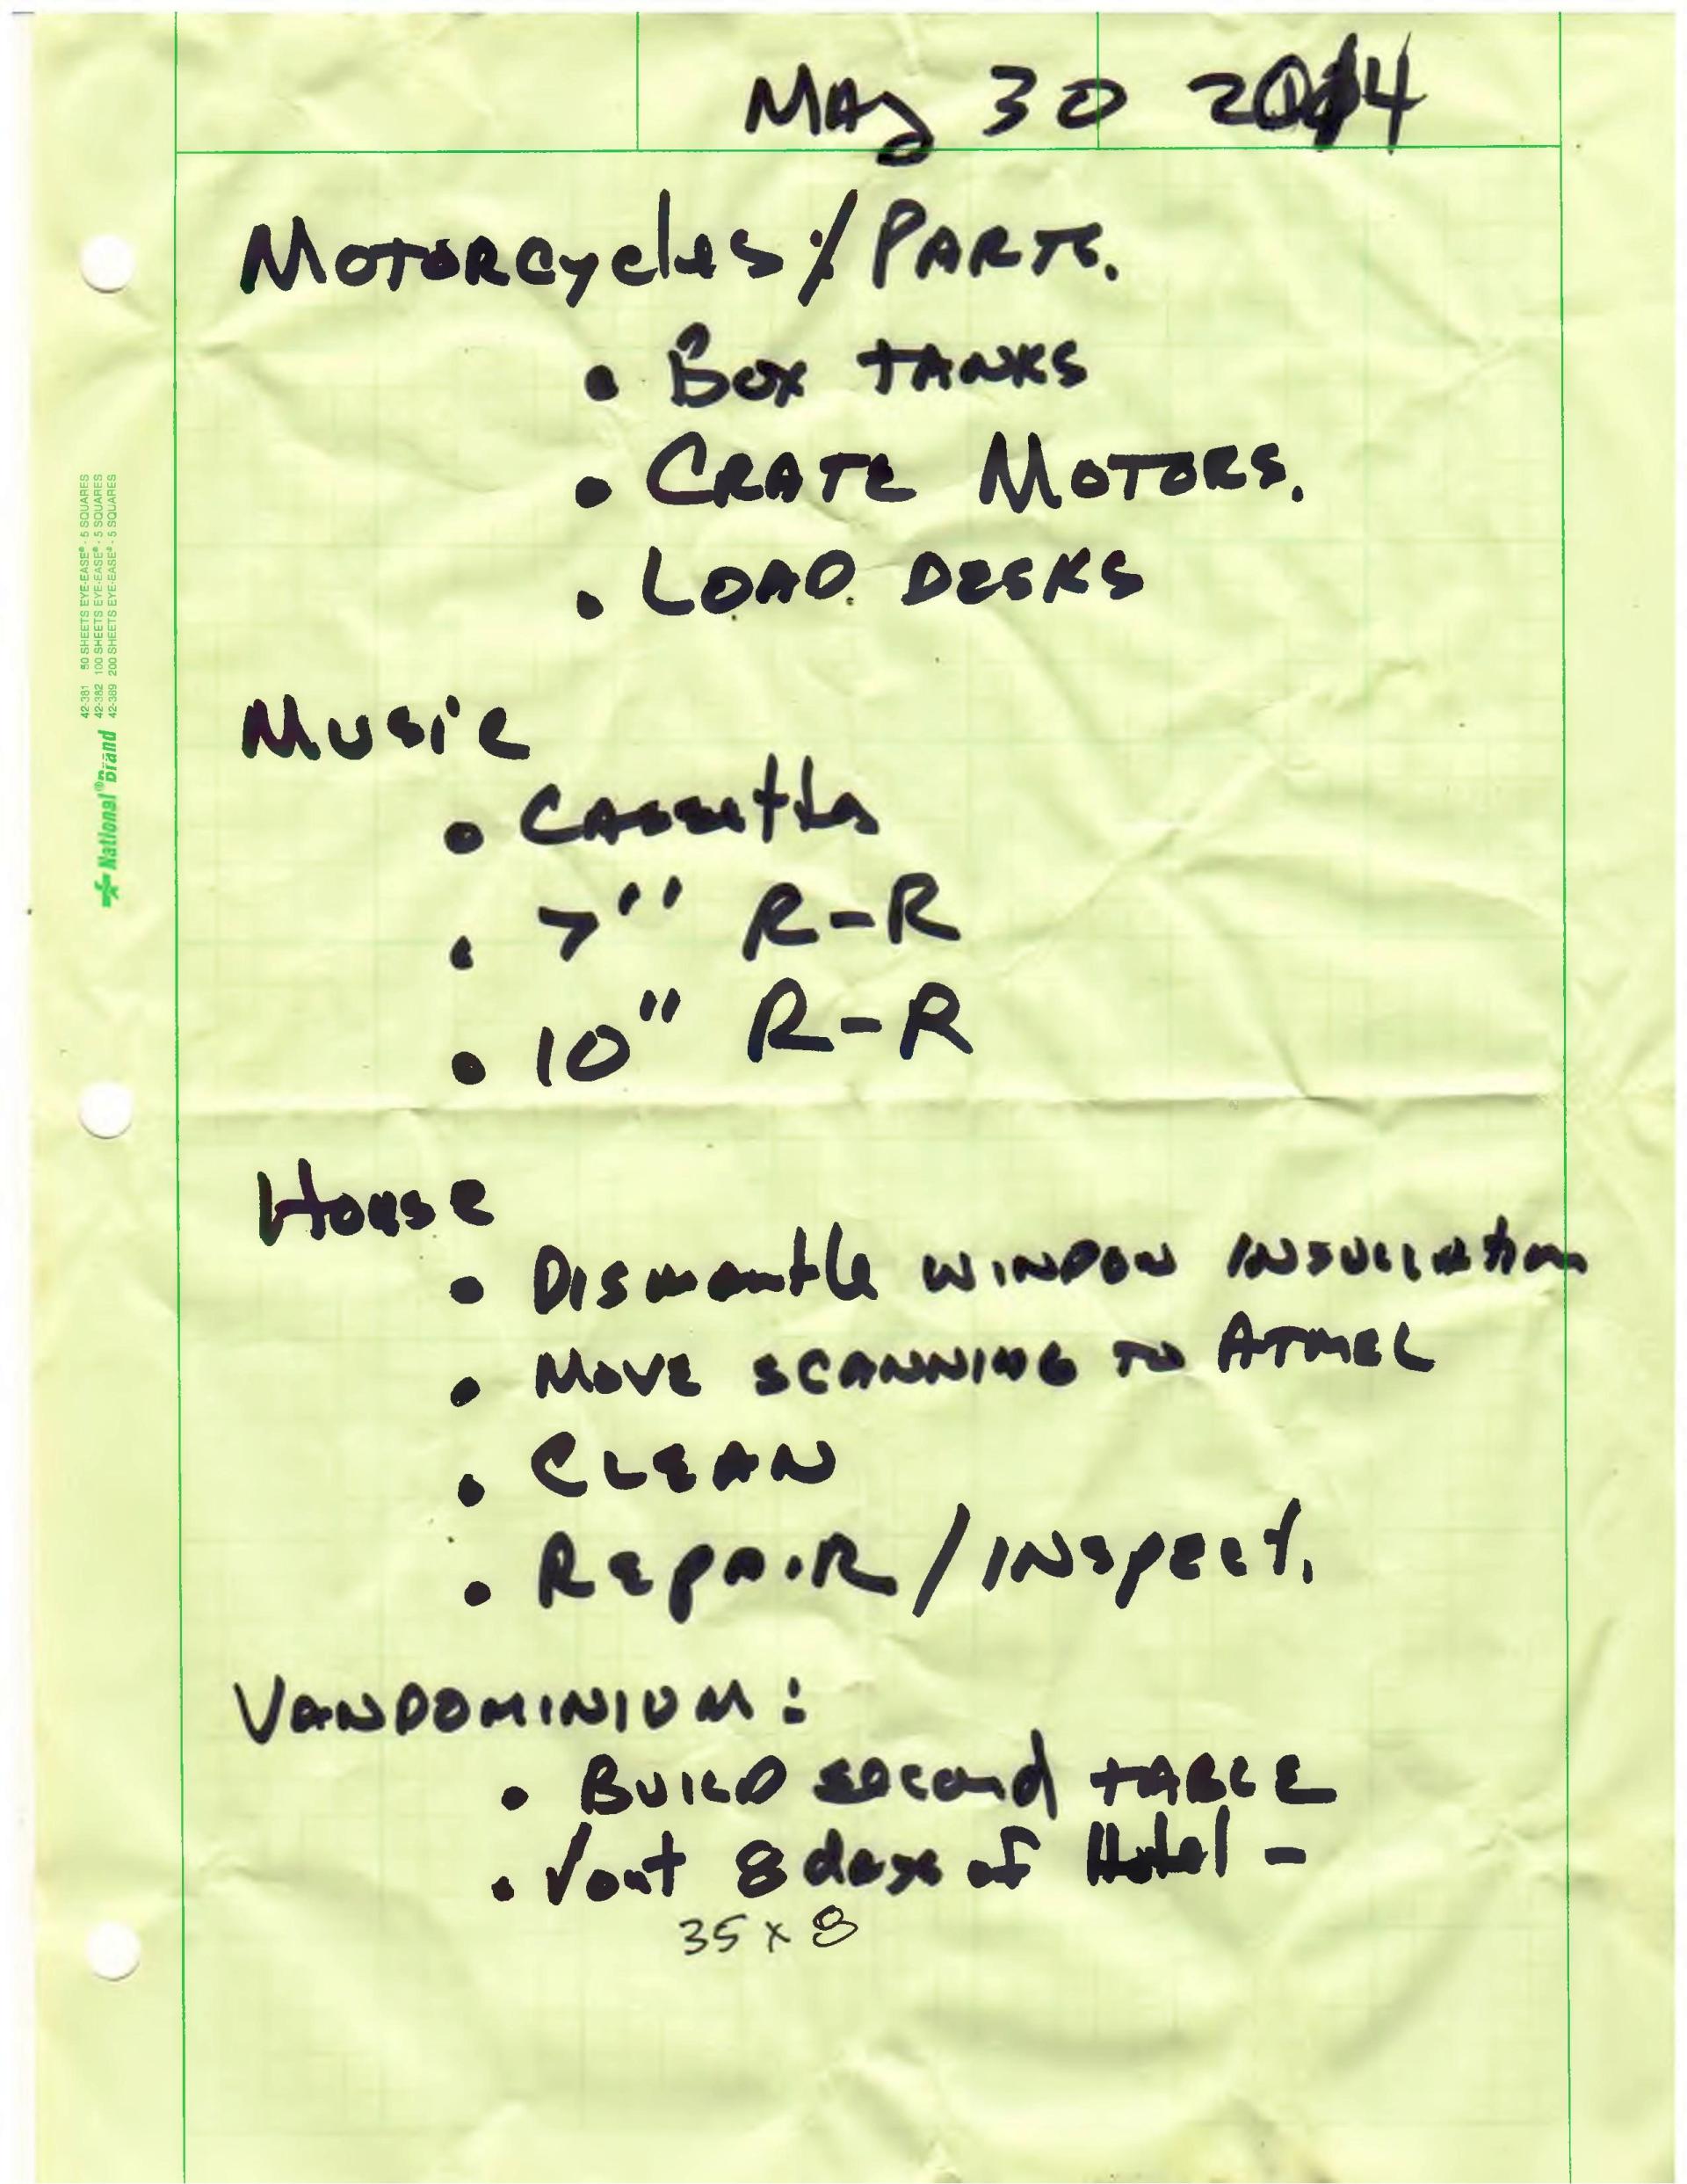 May 30 2014
Motorcycles / Parts.
• Box tanks
• Crate Motors.
• Load desks
Music
• Cassettes
• 7" R-R
• 10" R-R
House
• Dismantle window insullation
• Move scanning to Atmel
• Clean
• Repair / inspect.
Vandominium:
• Build second table
• 8 days of Hotel -
35 x 8
42-381 50 SHEETS EYE-EASE® - 5 SQUARES
42-382 100 SHEETS EYE-EASE® - 5 SQUARES
42-389 200 SHEETS EYE-EASE® - 5 SQUARES
National ® Brand